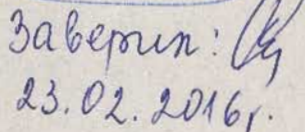 Заверил:
23.02.2016г.